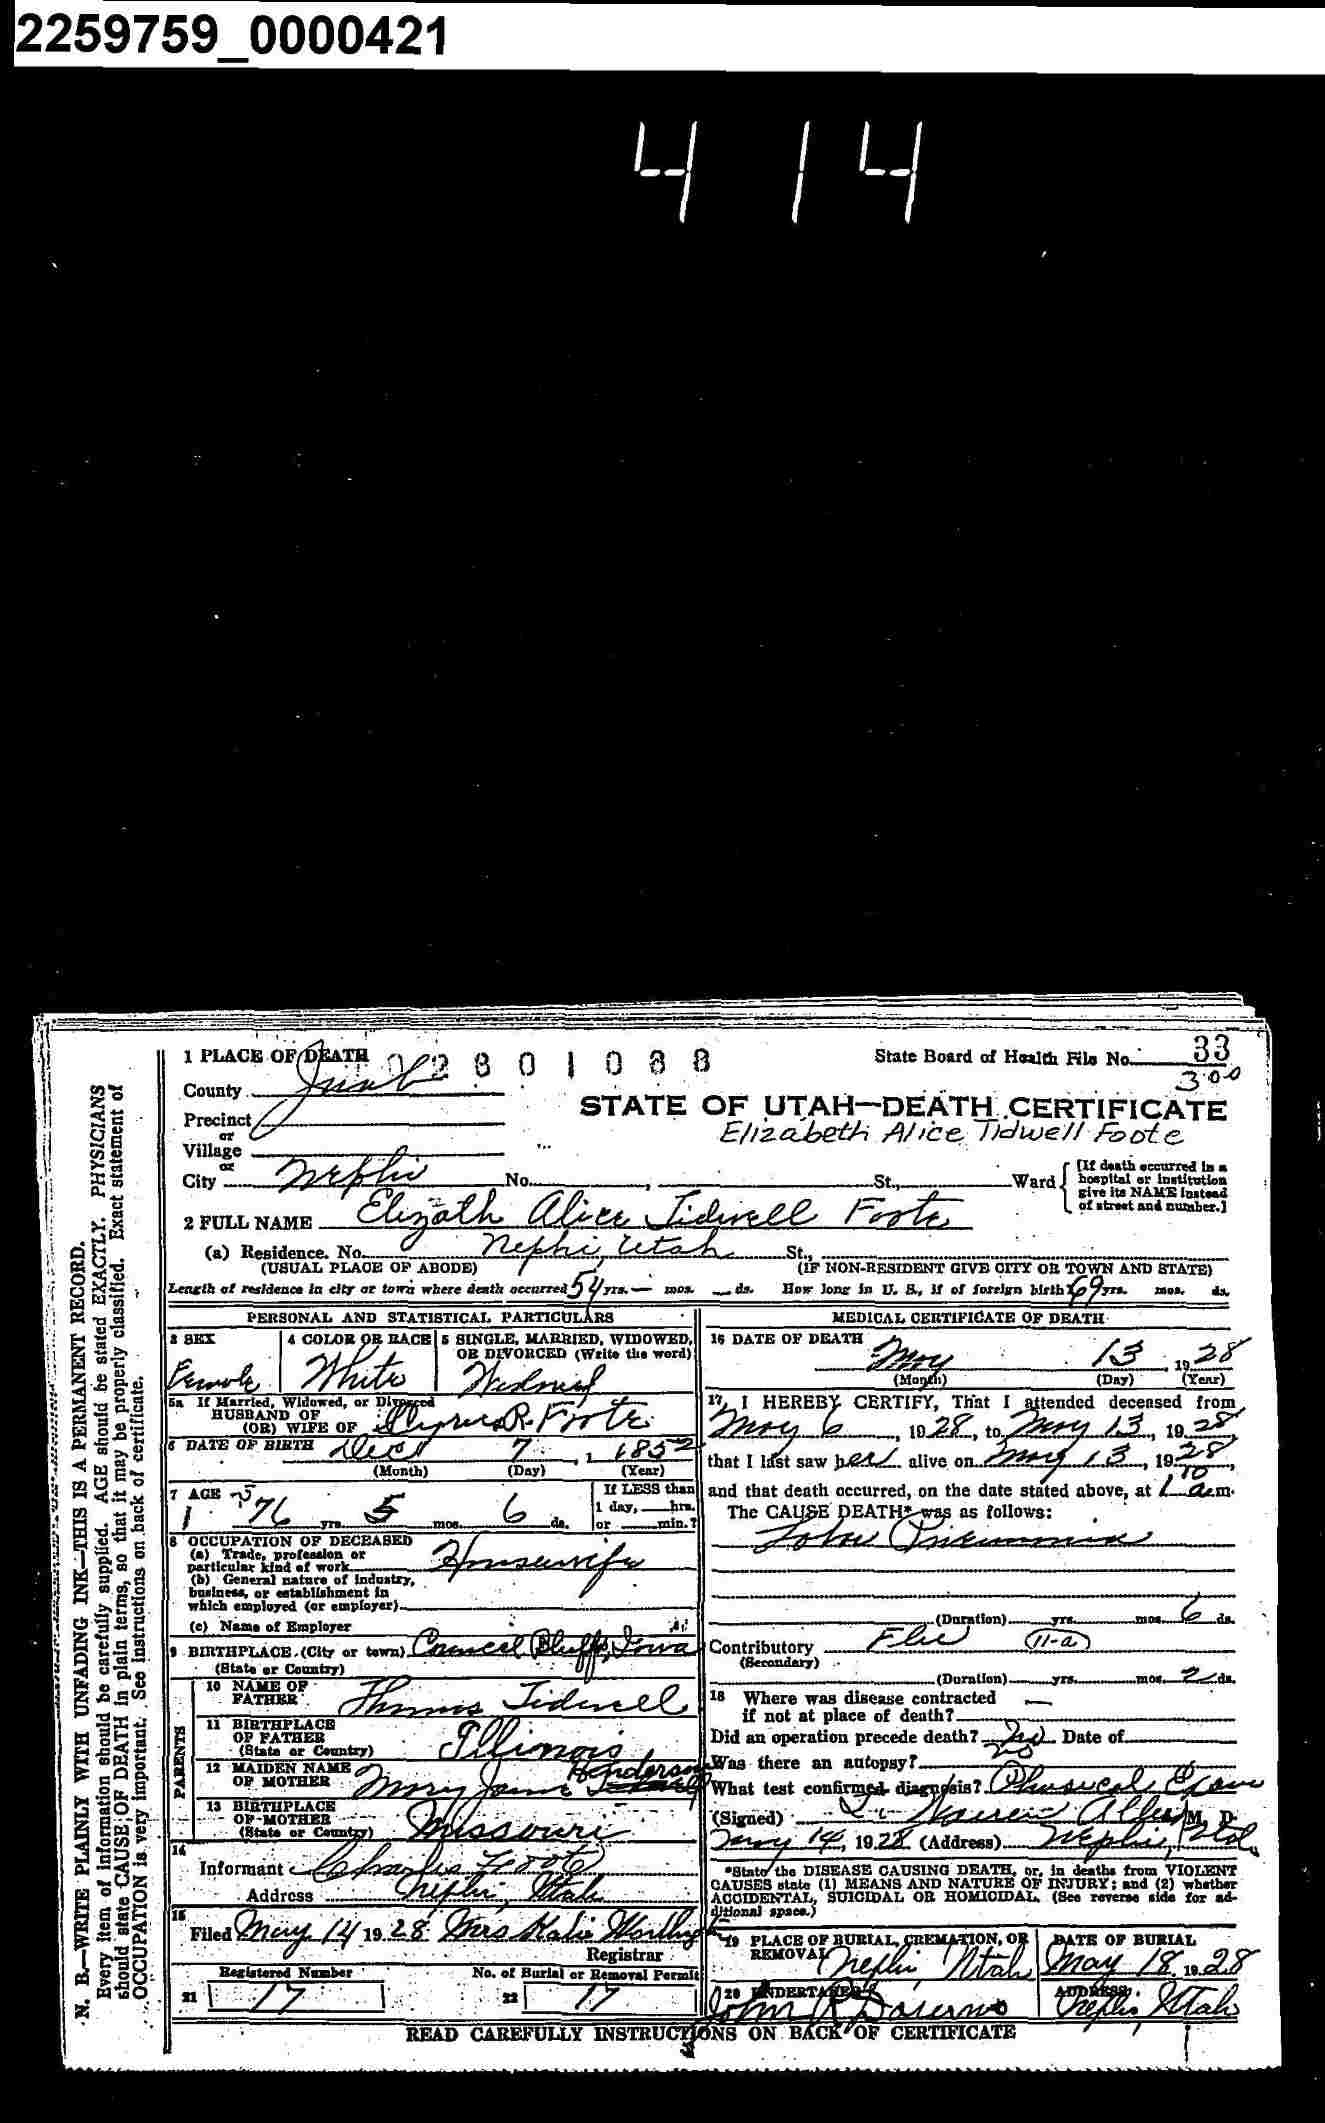 2259759_0000421
414
1 PLACE OF DEATH 02801088 State Board of Health File No. 33
County Juab 300
STATE OF UTAH—DEATH CERTIFICATE
Precinct
Elizabeth Alice Tidwell Foote
or
Village
or
City Nephi No. St., Ward [If death occurred in a hospital or institution give its NAME instead of street and number.]
2 FULL NAME Elizath Alice Tidwell Foote
(a) Residence. No. Nephi, Utah St.,
(USUAL PLACE OF ABODE) (IF NON-RESIDENT GIVE CITY OR TOWN AND STATE)
Length of residence in city or town where death occurred 54 yrs. — mos. — ds. How long in U. S., if of foreign birth 69 yrs. mos. ds.
PERSONAL AND STATISTICAL PARTICULARS
3 SEX 4 COLOR OR RACE 5 SINGLE, MARRIED, WIDOWED, OR DIVORCED (Write the word)
Female White Widowed
5a If Married, Widowed, or Divorced
HUSBAND OF
(OR) WIFE OF Cyrus R. Foote
6 DATE OF BIRTH Dec 7, 1852
(Month) (Day) (Year)
7 AGE If LESS than
76 yrs. 5 mos. 6 ds. 1 day, hrs.
or min.?
8 OCCUPATION OF DECEASED
(a) Trade, profession or
particular kind of work Housewife
(b) General nature of industry,
business, or establishment in
which employed (or employer)
(c) Name of Employer
9 BIRTHPLACE (City or town) Council Bluffs, Iowa
(State or Country)
PARENTS
10 NAME OF
FATHER Thomas Tidwell
11 BIRTHPLACE
OF FATHER
(State or Country) Illinois
12 MAIDEN NAME
OF MOTHER Mary Jane Henderson
13 BIRTHPLACE
OF MOTHER
(State or Country) Missouri
14
Informant Charles Foote
Address Nephi, Utah
15
Filed May 14 1928 Mrs Katie
Registrar
Registered Number No. of Burial or Removal Permit
21 17 22 17
MEDICAL CERTIFICATE OF DEATH
16 DATE OF DEATH
May 13, 1928
(Month) (Day) (Year)
17 I HEREBY CERTIFY, That I attended deceased from
May 6, 1928, to May 13, 1928,
that I last saw her alive on May 13, 1928,
and that death occurred, on the date stated above, at 1 10 a.m.
The CAUSE DEATH* was as follows:
Lobar Pneumonia
(Duration) yrs. mos. 6 ds.
Contributory Flu 11-a
(Secondary)
(Duration) yrs. mos. 2 ds.
18 Where was disease contracted
if not at place of death? —
Did an operation precede death? No Date of
Was there an autopsy? no
What test confirmed diagnosis? Physical Exam
(Signed) Warren Allen, M. D.
May 14, 1928 (Address) Nephi, Utah
*State the DISEASE CAUSING DEATH, or, in deaths from VIOLENT
CAUSES state (1) MEANS AND NATURE OF INJURY; and (2) whether
ACCIDENTAL, SUICIDAL OR HOMICIDAL. (See reverse side for ad-
ditional space.)
19 PLACE OF BURIAL, CREMATION, OR DATE OF BURIAL
REMOVAL Nephi Utah May 18, 1928
20 UNDERTAKER ADDRESS
John R Nephi Utah
READ CAREFULLY INSTRUCTIONS ON BACK OF CERTIFICATE
N. B.—WRITE PLAINLY WITH UNFADING INK—THIS IS A PERMANENT RECORD.
Every item of information should be carefully supplied. AGE should be stated EXACTLY. PHYSICIANS
should state CAUSE OF DEATH in plain terms, so that it may be properly classified. Exact statement of
OCCUPATION is very important. See instructions on back of certificate.